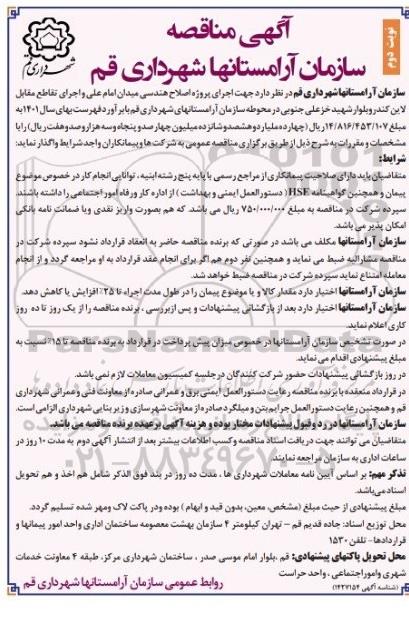 آگهی مناقصه
سازمان آرامستانها شهرداری قم
نوبت دوم
شهرداری قم
سازمان آرامستانها شهرداری قم در نظر دارد جهت اجرای پروژه اصلاح هندسی میدان امام علی و اجرای تقاطع مقابل
لاین کندرو بلوار شهید خزعلی جنوبی در محوطه سازمان آرامستانهای شهرداری قم با برآورد فهرست بهای سال ۱۴۰۱ به
مبلغ ۱۴/۸۱۶/۴۵۳/۱۰۷ ریال (چهارده میلیارد و هشتصد و شانزده میلیون چهارصد و پنجاه و سه هزار و صد و هفت ریال) را با
مشخصات و مقررات به شرح ذیل از طریق برگزاری مناقصه عمومی به شرکت ها و پیمانکاران واجد شرایط واگذار نماید:
شرایط:
متقاضیان باید دارای صلاحیت پیمانکاری از مراجع رسمی با پایه پنج رشته ابنیه ، توانایی انجام کار در خصوص موضوع
پیمان و همچنین گواهینامه HSE (دستورالعمل ایمنی و بهداشت) از اداره کار و رفاه امور اجتماعی را داشته باشند.
سپرده شرکت در مناقصه به مبلغ ۷۵۰/۰۰۰/۰۰۰ ریال می باشد. که هم بصورت واریز نقدی و یا ضمانت نامه بانکی
امکان پذیر می باشد.
سازمان آرامستانها مکلف می باشد در صورتی که برنده مناقصه حاضر به انعقاد قرارداد نشود سپرده شرکت در
مناقصه مشارالیه ضبط می نماید و همچنین نفر دوم هم اگر برای انجام عقد قرارداد به او مراجعه گردد و از انجام
معامله امتناع نماید سپرده شرکت در مناقصه ضبط خواهد شد.
سازمان آرامستانها اختیار دارد مقدار کالا و یا موضوع پیمان را در طول مدت اجراء تا ۲۵٪ افزایش یا کاهش دهد.
سازمان آرامستانها اختیار دارد بعد از بازگشائی پیشنهادات و پس از بررسی ، برنده مناقصه را از یک روز تا ده روز
کاری اعلام نماید.
در صورت تشخیص سازمان آرامستانها در خصوص میزان پیش پرداخت در قرارداد به برنده مناقصه تا ۱۵٪ نسبت به
مبلغ پیشنهادی اقدام می نماید.
در روز بازگشائی پیشنهادات حضور شرکت کنندگان در جلسه کمیسیون معاملات لازم نمی باشد.
در قرارداد منعقده با برنده مناقصه رعایت دستورالعمل ایمنی برق و عمرانی صادره از معاونت فنی و عمرانی شهرداری
قم و همچنین رعایت دستورالعمل جرایم بتن و میلگرد صادره از معاونت شهرسازی و زیربنایی شهرداری الزامی است.
سازمان آرامستانها در رد و قبول پیشنهادات مختار بوده و هزینه آگهی بر عهده برنده مناقصه می باشد.
متقاضیان می توانند جهت دریافت اسناد مناقصه و کسب اطلاعات بیشتر بعد از انتشار آگهی دوم به مدت ۱۰ روز در
ساعات اداری به سازمان مراجعه نمایند.
تذکر مهم: بر اساس آیین نامه معاملات شهرداری ها ، مدت ده روز در بند فوق الذکر شامل هم اخذ و هم تحویل
اسناد می باشد.
مبلغ پیشنهادی از حیث مبلغ (مشخص، معین، بدون قید و ابهام) بوده و در پاکت لاک ومهر شده تسلیم گردد.
محل توزیع اسناد: جاده قدیم قم – تهران کیلومتر ۴ سازمان بهشت معصومه ساختمان اداری واحد امور پیمانها و
قراردادها - تلفن ۱۵۳۰
محل تحویل پاکتهای پیشنهادی: قم ،بلوار امام موسی صدر ، ساختمان شهرداری مرکز، طبقه ۴ معاونت خدمات
شهری و امور اجتماعی ، واحد حراست
(شناسه آگهی ۱۴۲۷۱۵۴)
روابط عمومی سازمان آرامستانها شهرداری قم
ParsNamadData
۰۲۱-۸۸۳۴۹۶۷۰-۹